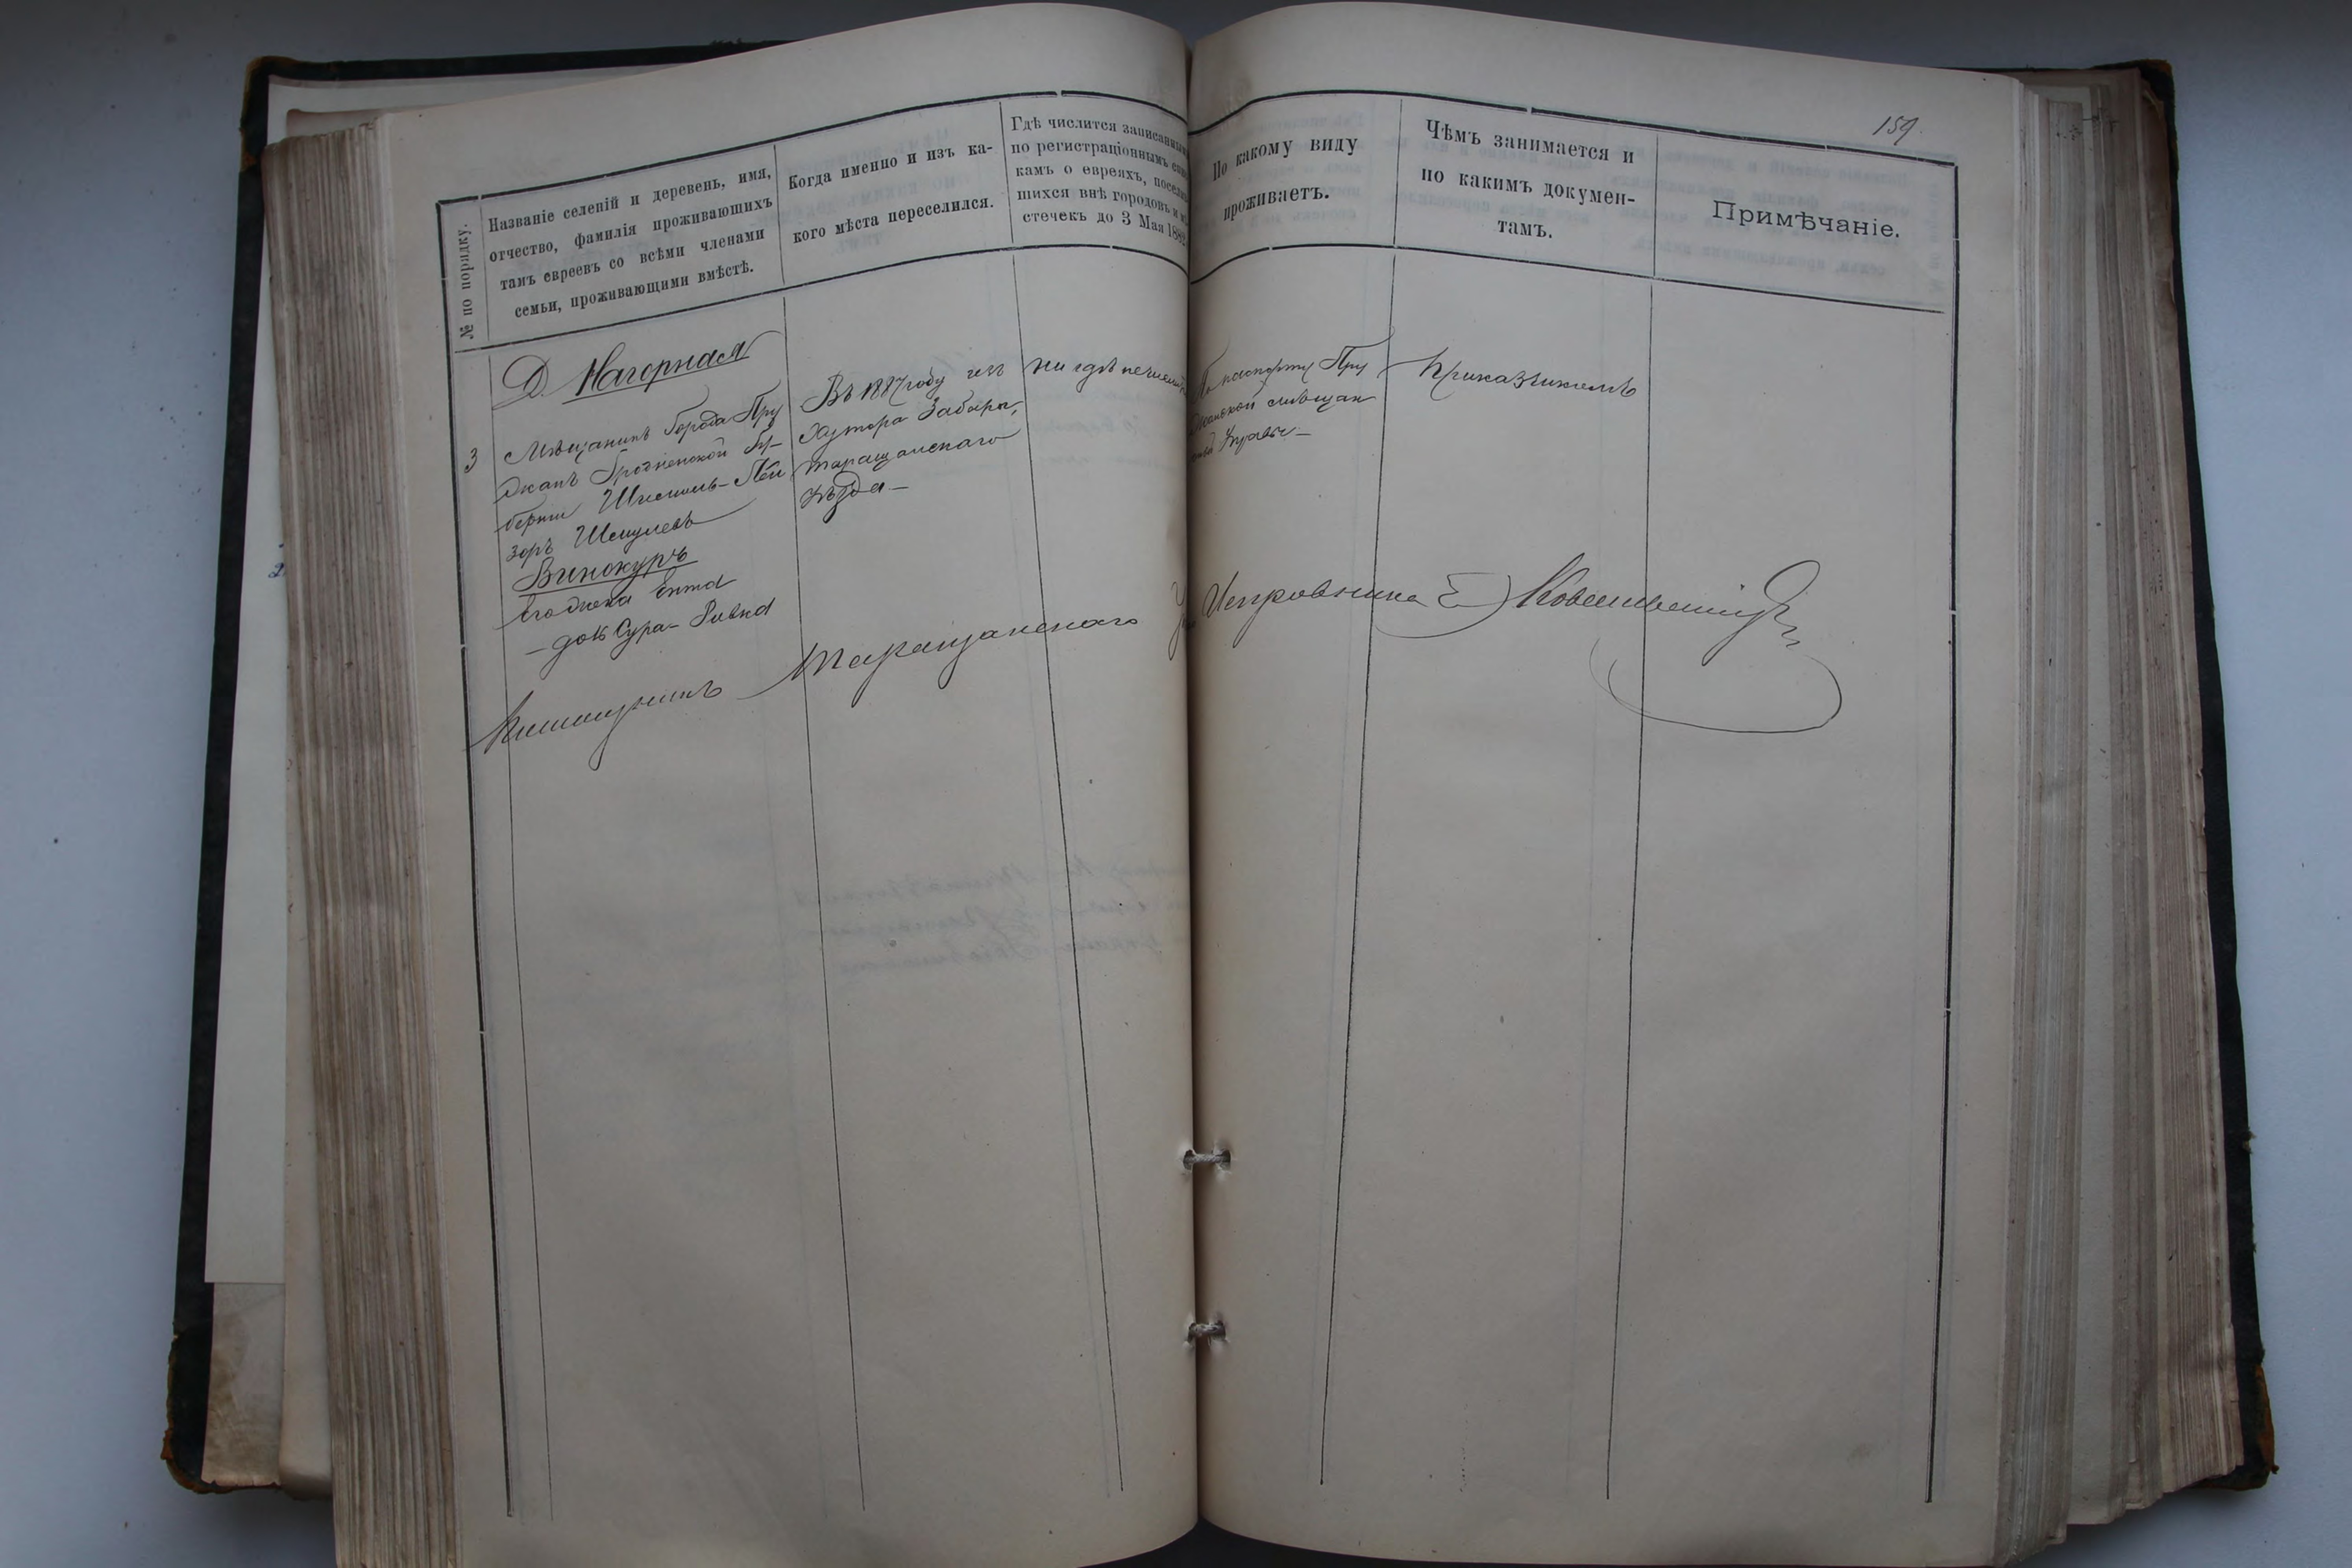 159.
№ по порядку.
Названіе селеній и деревень, имя,
отчество, фамилія проживающихъ
тамъ евреевъ со всѣми членами
семьи, проживающими вмѣстѣ.
Когда именно и изъ ка-
кого мѣста переселился.
Гдѣ числится записаннымъ
по регистраціоннымъ спис
камъ о евреяхъ, поселив
шихся внѣ городовъ и мѣ
стечекъ до 3 Мая 1882
По какому виду
проживаетъ.
Чѣмъ занимается и
по какимъ докумен-
тамъ.
Примѣчаніе.
Д. Нагорная
3
Мѣщанинъ Города Пру
жанъ Гродненской Гу-
берніи Шлема-Лей
зоръ Шмулевъ
Винокуръ
Его жена Ента
дочь Сура-Ривка
Въ 1887 году изъ
Хутора Забары,
Таращанскаго
уѣзда.—
Ни гдѣ не числится
По паспорту Пру
жанской мѣщан
ской Управы.—
Прикащикомъ
Таращанскаго
Исправника